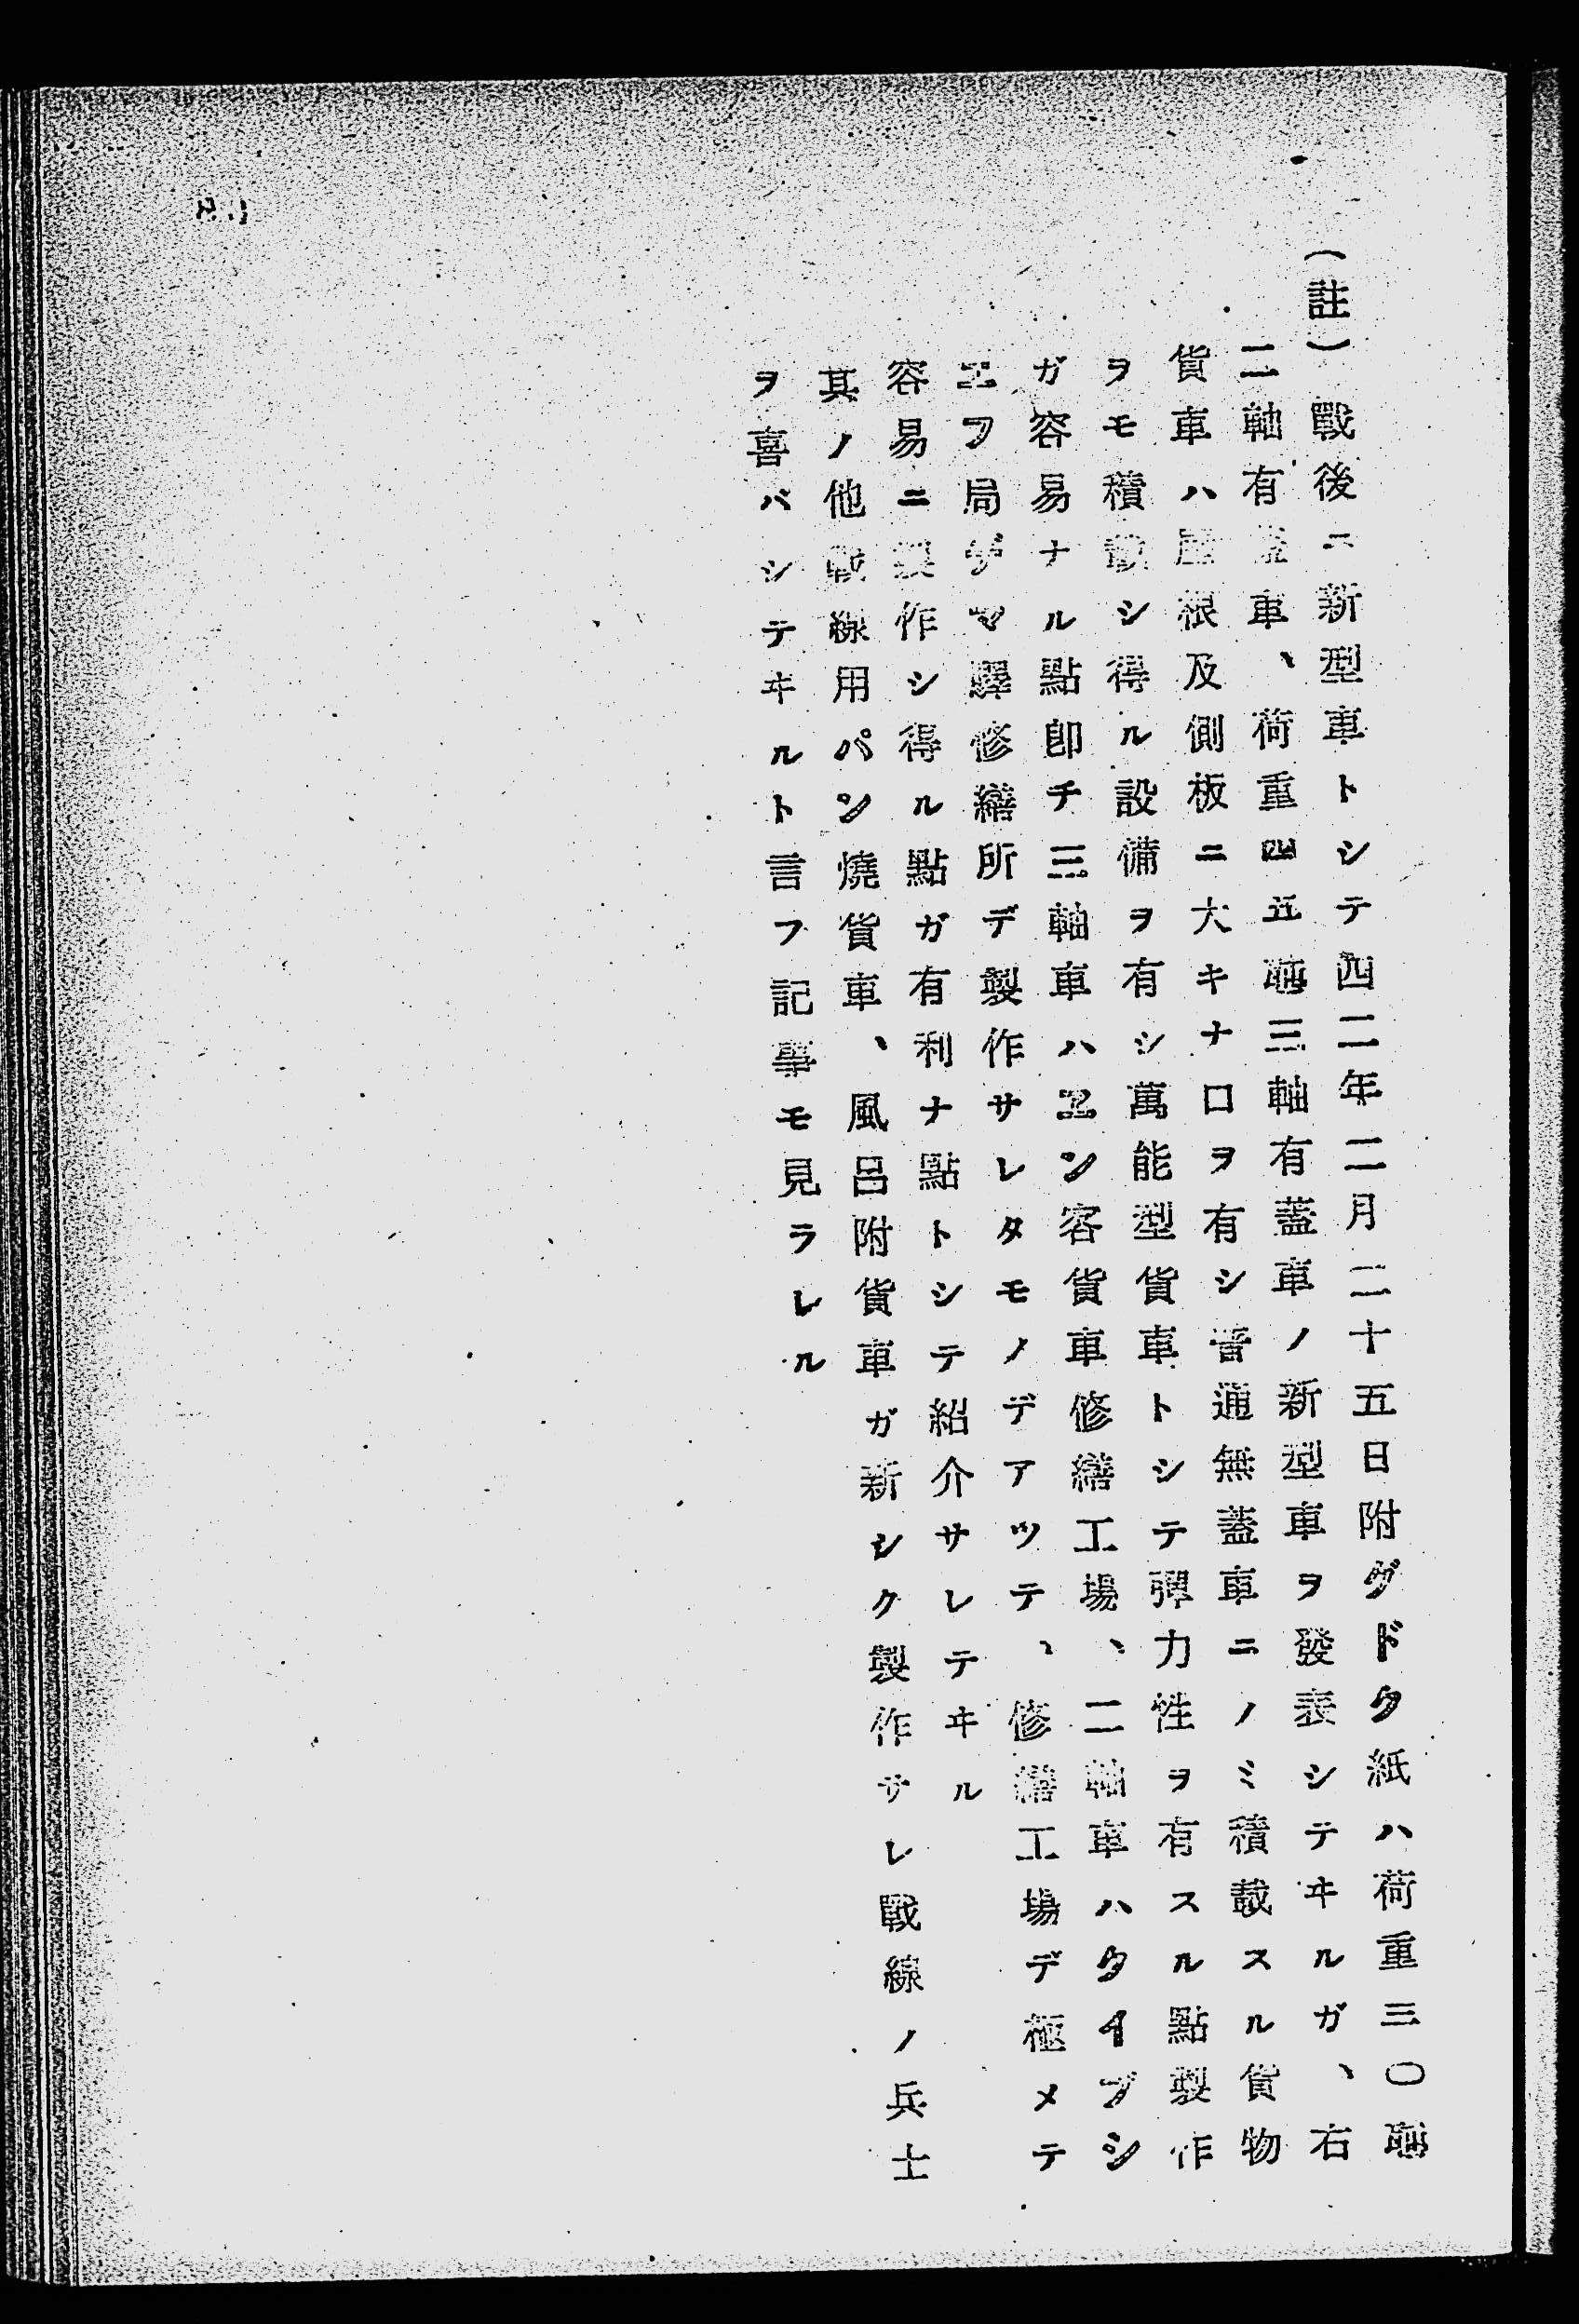 （註）戰後ニ新型車トシテ四二年二月二十五日附グドタ紙ハ荷重三〇瓲
二軸有蓋車、荷重四五瓲三軸有蓋車ノ新型車ヲ發表シテヰルガ、右
貨車ハ屋根及側板ニ大キナ口ヲ有シ普通無蓋車ニノミ積載スル貨物
ヲモ積載シ得ル設備ヲ有シ萬能型貨車トシテ彈力性ヲ有スル點製作
ガ容易ナル點卽チ三軸車ハヱン客貨車修繕工場、二軸車ハタイプシ
ヱフ局ザマ驛修繕所デ製作サレタモノデアツテ、修繕工場デ極メテ
容易ニ製作シ得ル點ガ有利ナ點トシテ紹介サレテヰル
其ノ他戰線用パン燒貨車、風呂附貨車ガ新シク製作サレ戰線ノ兵士
ヲ喜バシテヰルト言フ記事モ見ラレル